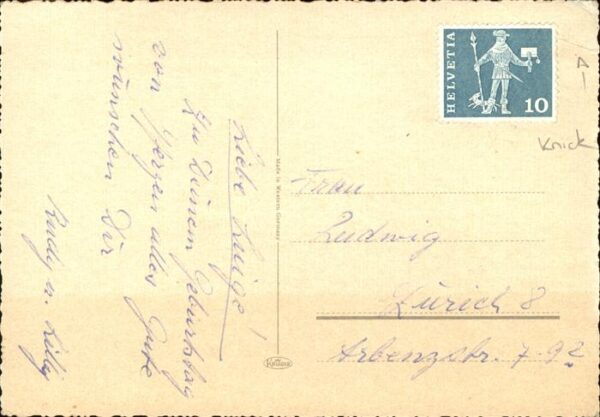 Liebe Luise!
Zu Deinem Geburtstag
von Herzen alles Gute
wünschen Dir
Rudy u. Lilly
Made in Western Germany
KRÜGER
HELVETIA
10
Knick
Frau
Ludwig
Zürich 8
Arbenzstr. 7.